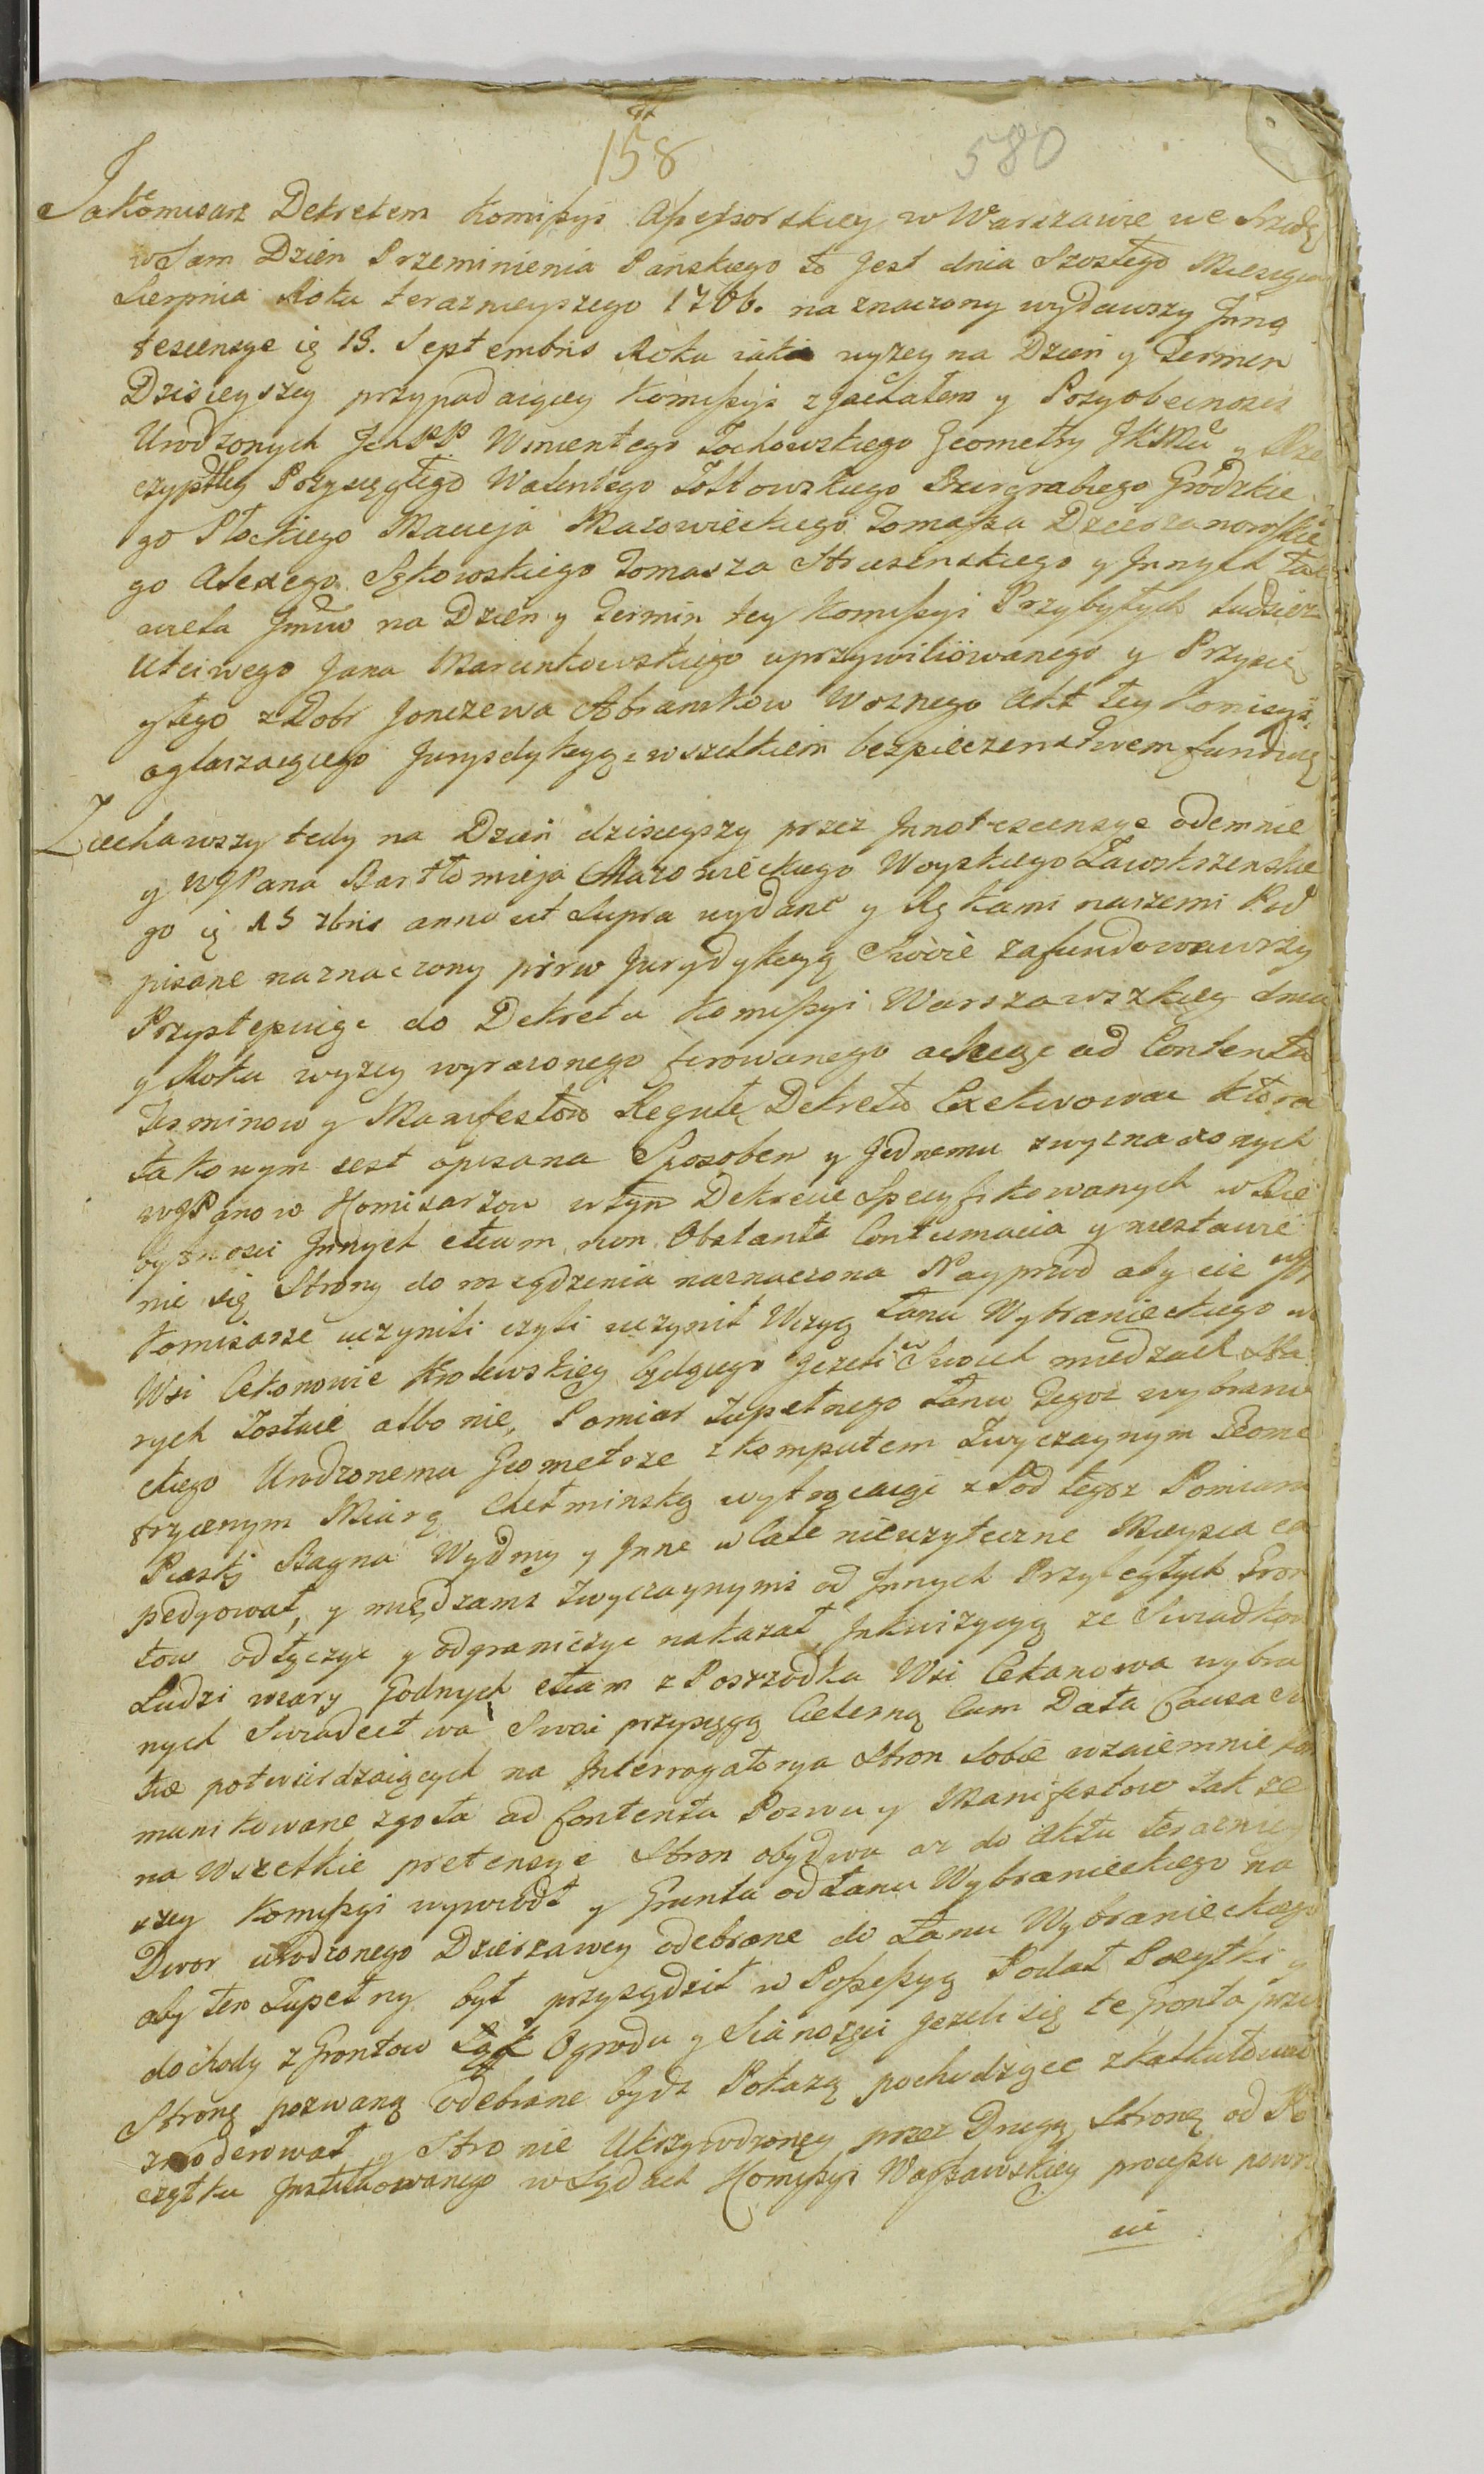 158 580
Ja Komisarz Dekretem Komißyi Aßeßorskiey w Warszawie we Srzodę
w Sam Dzien Przeminienia Pańskiego to Jest dnia Szostego Miesiąca
Sierpnia Roku teraznieyszego 1766. naznaczony wydawszy Jnno
tescensye ię 13. Septembris Roku iako wyzey na Dzien y Termin
Dzisieyszey przypadaiącey Komißyi zjachałem y Przyobecnosci
Urodzonych Jch PP Wincentego Zochowskiego Geometry JKMci y Rze
czypltey Przysięgłego Walentego Zołtowskiego Burgrabiego Grodzkie
go Płockiego Macieja Mazowieckiego Tomaßa Dzierzanowskie
go Alexego Sękowskiego Tomasza Struszenskiego y Jnnych
wielu Jmciow na Dzien y Termin tey Komißyi Przybyłych tudziez
Ucciwego Jana Marcinkowskiego uprzywiliiowanego y Przysię
głego z Dobr Jonczewa Abramkow Woznego Akt tey Komisyi
ogłaszaiącego Jurysdykcyą z wszelkiem bezpieczenstwem funduię
Ziechawszy tedy na Dzien dzisieyszy przez Jnnotescensye odemnie
y WJPana Bartłomieja Mazowieckiego Woyskiego Zawskrzenskie
go ię 13 7bris anno ut Supra wydane y Rękami naszemi Pod
pisane naznaczony pirw Jurydykcyą Swoie zafundowawszy
Przystępuięc do Dekretu Komißyi Warszawszkiey dnia
y Roku wyzey wyrazonego ferowanego a chcąc ad Contenta
Terminow y Manifestow Regułę Dekretu Exekwowac ktora
takowym iest opisana Sposobem y Jednemu zwyznaczonych
WJPanow Komisarzow wtym Dekrecie Specyfikowanych w Nie
bytnosci Jnnych etiam non Obstante Contumacia y niestawie
nie się Strony do rozsądzenia naznaczona Nayprzod aby ciz WJ
Komisarze uczynili czyli uczynił Wizyą Łanu Wybranieckiego we
Wsi Cekonowie Krolewskiey będącego Jezeli w Swoich miedzach Sta
rych Zostaie albo nie, Pomiar Zupełnego Łanu Tegoz wybranie
ckiego Urodzonemu Geometrze z komputem Zwyczaynym Geome
trycznym Miarą Chełminską wytrącaięc z Pod tegoz Pomiaru
Piaski Bagna Wydmy y Jnne w Cale nieuzyteczne Mieysca ex
pedyował, y międzami Zwyczaynymi od Jnnych Przyległych Gron
tow odłączyc y odgraniczyc nakazał, Jnkwizycyą ze Swiadkow
Ludzi wiary Godnych etiam z Posrzodka Wsi Cekanowa wybra
nych Swiadectwa Swoi przysięgą Cielesną Cum Data Causa
potwierdzaiących na Interrogatorya Stron Sobie wzaiemnie kom
munikowane zgoła ad Contenta Pozwu y Manifestow tak ze
na Wszelkie pretensye Stron obydwu az do Aktu teraznie
szey Komißyi wywiodł y Grunta od Łanu Wybranieckiego na
Dwor urodzonego Dzierzawcy odebrane do Łanu Wybranieckiego
aby ten Zupełny był przysądził w Poßeßyą Podał Pozytki y
dochody z Grontow Łąk Ogrodu y Sianozęci Jezeli się te Gronta przez
Stronę pozwaną odebrane bydz Pokazą pochodzące zkalkulował
zmoderował y Stronie Ukrzywdzoney przez Drugą Stronę od Po
czątku Jnstituowanego w Sądach Komißyi Warßawskiey proceßu powro
cić